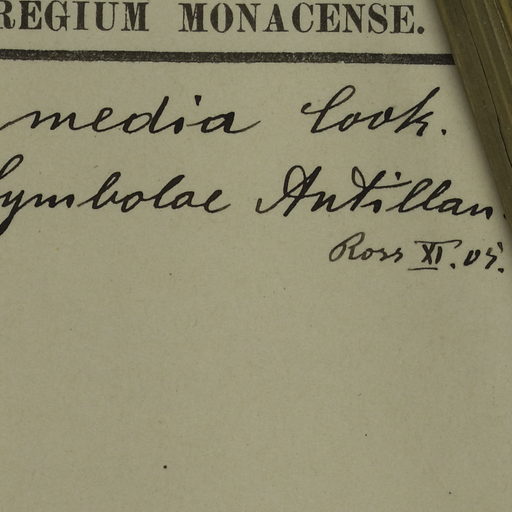 REGIUM MONACENSE.
media Cook.
Symbolae Antillan.
Ross XI. 05.